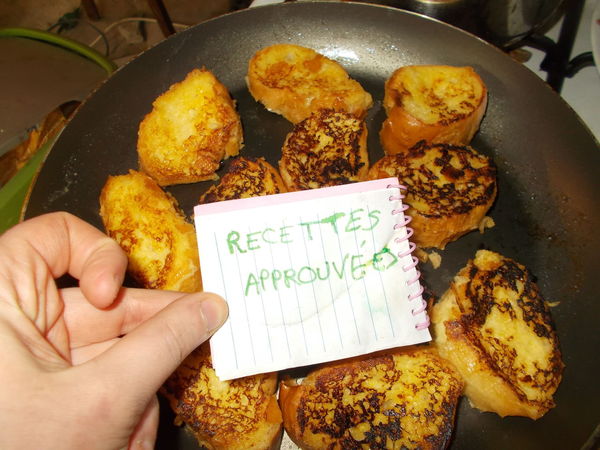 RECETTES
APPROUVÉES